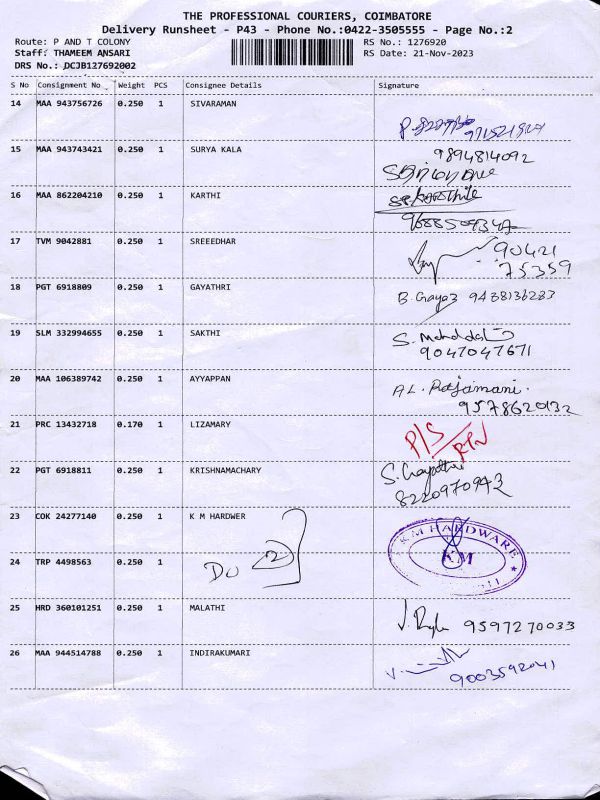 THE PROFESSIONAL COURIERS, COIMBATORE
Delivery Runsheet - P43 - Phone No.:0422-3505555 - Page No.:2
Route: P AND T COLONY RS No.: 1276920
Staff: THAMEEM ANSARI RS Date: 21-Nov-2023
DRS No.: DCJB127692002
S No Consignment No Weight PCS Consignee Details Signature
14 MAA 943756726 0.250 1 SIVARAMAN
15 MAA 943743421 0.250 1 SURYA KALA 9894814092
16 MAA 862204210 0.250 1 KARTHI
17 TVM 9042881 0.250 1 SREEEDHAR 90421
75359
18 PGT 6918809 0.250 1 GAYATHRI B. Gayo3 9438136283
19 SLM 332994655 0.250 1 SAKTHI S.
9047047671
20 MAA 106389742 0.250 1 AYYAPPAN AL. Rajamani.
9578620132
21 PRC 13432718 0.170 1 LIZAMARY P/S
RTN
22 PGT 6918811 0.250 1 KRISHNAMACHARY S. Gayathri
8220970943
23 COK 24277140 0.250 1 K M HARDWER KM HARDWARE
KM
24 TRP 4498563 0.250 1 DU 2
25 HRD 360101251 0.250 1 MALATHI 9597270033
26 MAA 944514788 0.250 1 INDIRAKUMARI
9003592041